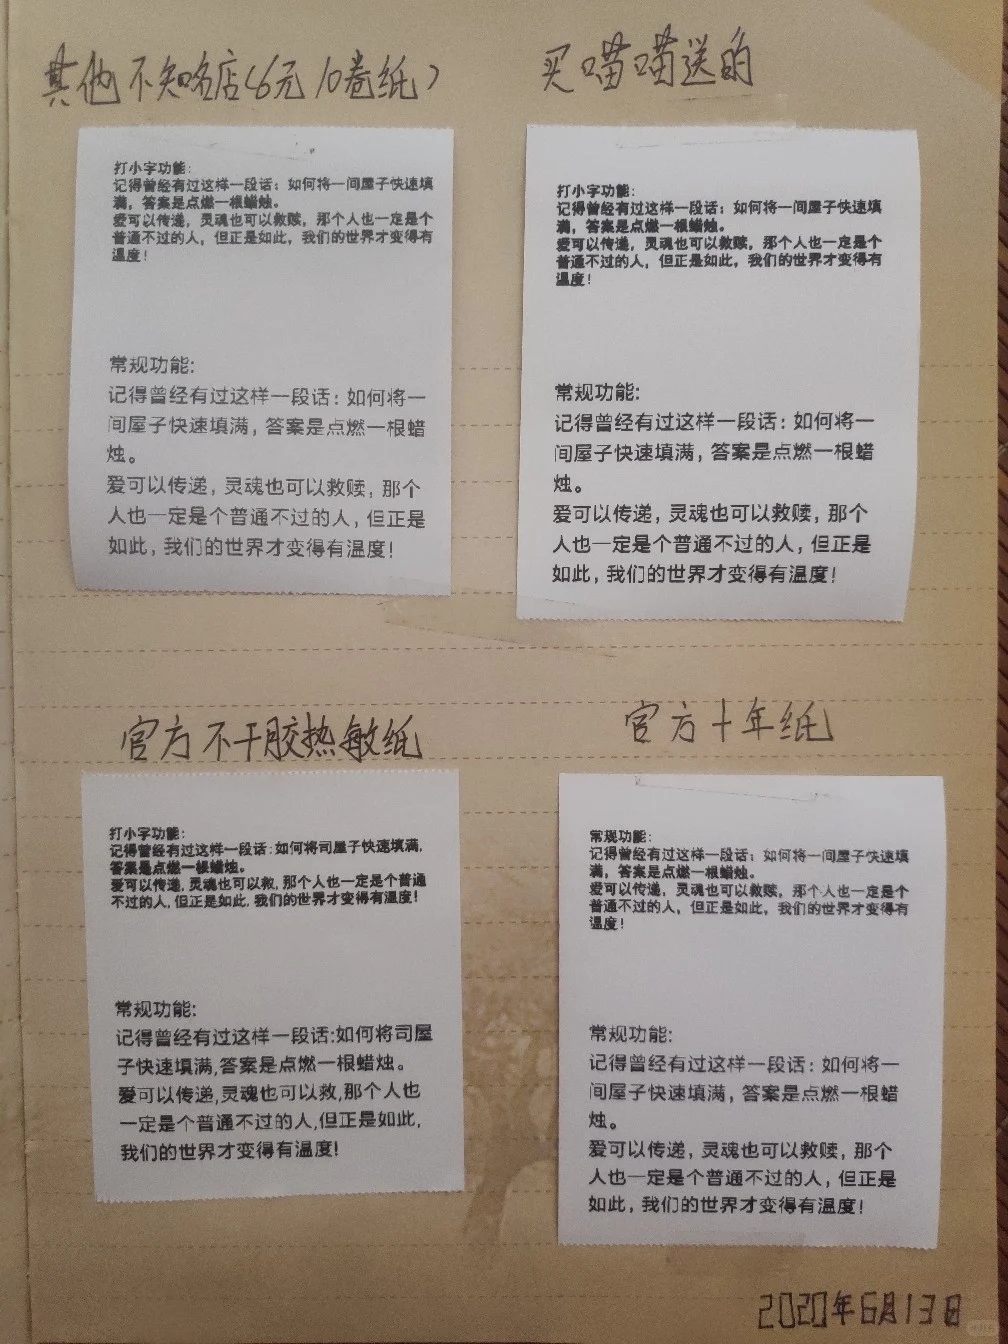 其他不知名店(6元10卷纸)
打小字功能:
记得曾经有过这样一段话：如何将一间屋子快速填
满，答案是点燃一根蜡烛。
爱可以传递，灵魂也可以救赎，那个人也一定是个
普通不过的人，但正是如此，我们的世界才变得有
温度！
常规功能:
记得曾经有过这样一段话：如何将一
间屋子快速填满，答案是点燃一根蜡
烛。
爱可以传递，灵魂也可以救赎，那个
人也一定是个普通不过的人，但正是
如此，我们的世界才变得有温度！
买喵喵送的
打小字功能:
记得曾经有过这样一段话：如何将一间屋子快速填
满，答案是点燃一根蜡烛。
爱可以传递，灵魂也可以救赎，那个人也一定是个
普通不过的人，但正是如此，我们的世界才变得有
温度！
常规功能:
记得曾经有过这样一段话：如何将一
间屋子快速填满，答案是点燃一根蜡
烛。
爱可以传递，灵魂也可以救赎，那个
人也一定是个普通不过的人，但正是
如此，我们的世界才变得有温度！
官方不干胶热敏纸
打小字功能:
记得曾经有过这样一段话:如何将司屋子快速填满,
答案是点燃一根蜡烛。
爱可以传递,灵魂也可以救,那个人也一定是个普通
不过的人,但正是如此,我们的世界才变得有温度!
常规功能:
记得曾经有过这样一段话:如何将司屋
子快速填满,答案是点燃一根蜡烛。
爱可以传递,灵魂也可以救,那个人也
一定是个普通不过的人,但正是如此,
我们的世界才变得有温度!
官方十年纸
常规功能:
记得曾经有过这样一段话：如何将一间屋子快速填
满，答案是点燃一根蜡烛。
爱可以传递，灵魂也可以救赎，那个人也一定是个
普通不过的人，但正是如此，我们的世界才变得有
温度！
常规功能:
记得曾经有过这样一段话：如何将一
间屋子快速填满，答案是点燃一根蜡
烛。
爱可以传递，灵魂也可以救赎，那个
人也一定是个普通不过的人，但正是
如此，我们的世界才变得有温度！
2020年6月13日